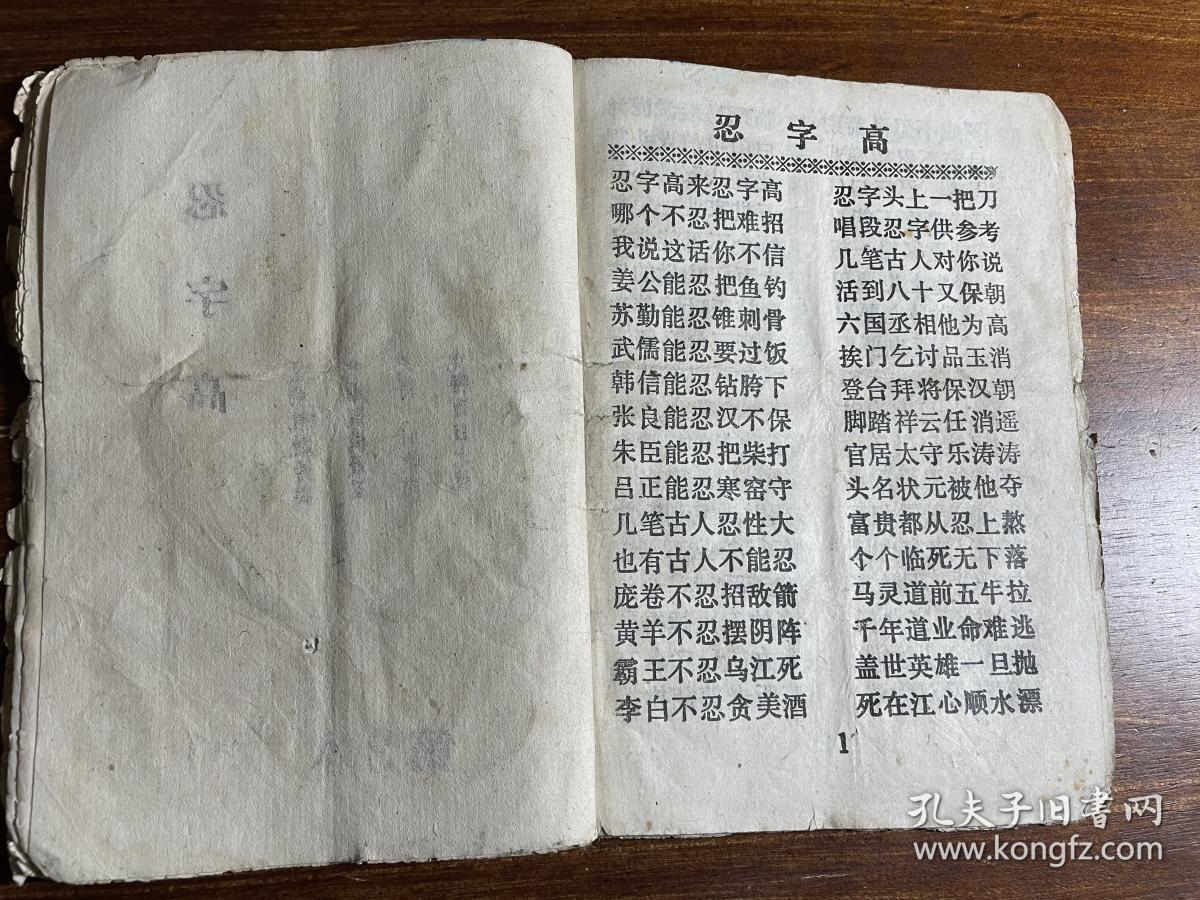 忍字高
忍字高来忍字高 忍字头上一把刀
哪个不忍把难招 唱段忍字供参考
我说这话你不信 几笔古人对你说
姜公能忍把鱼钓 活到八十又保朝
苏勤能忍锥刺骨 六国丞相他为高
武儒能忍要过饭 挨门乞讨品玉消
韩信能忍钻胯下 登台拜将保汉朝
张良能忍汉不保 脚踏祥云任消遥
朱臣能忍把柴打 官居太守乐涛涛
吕正能忍寒窑守 头名状元被他夺
几笔古人忍性大 富贵都从忍上熬
也有古人不能忍 个个临死无下落
庞卷不忍招敌箭 马灵道前五牛拉
黄羊不忍摆阴阵 千年道业命难逃
霸王不忍乌江死 盖世英雄一旦抛
李白不忍贪美酒 死在江心顺水漂
1
孔夫子旧書网
www.kongfz.com
忍
字
高